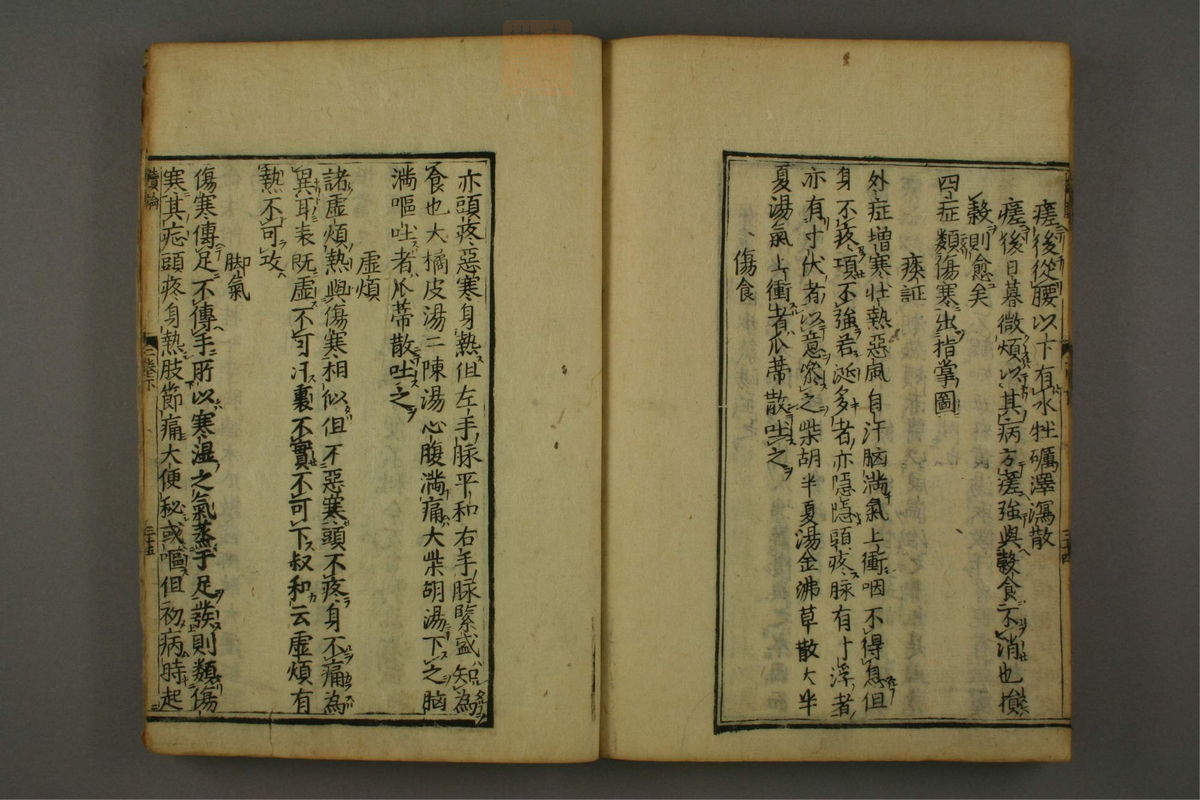 瘥後從腰以下有水牡礪澤瀉散
瘥後日暮微煩以其病方瘥強與穀食不消也損
穀則愈矣
四症類傷寒出指掌圖
痰証
外症増寒壮熱惡風自汗胸満氣上衝咽不得息但
身不疼項不強若涎多者亦隠隠頭疼脉有寸浮者
亦有寸伏者以意察之柴胡半夏湯金沸草散大半
夏湯氣上衝者瓜蒂散吐之
傷食
亦頭疼惡寒身熱但左手脉平和右手脉緊盛知為
食也大橘皮湯二陳湯心腹満痛大柴胡湯下之胸
満嘔吐者瓜蒂散吐之
虚煩
諸虚煩熱與傷寒相似但不惡寒頭不疼身不痛為
異耳表既虚不可汗裏不實不可下叔和云虚煩有
熱不可攻
脚氣
傷寒傳足不傳手所以寒湿之氣蒸于足發則類傷
寒其症頭疼身熱肢節痛大便秘或嘔但初病時起
二巻下
三十五